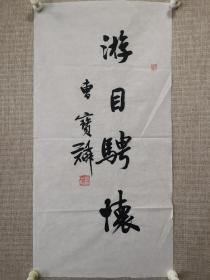 游目騁懷
曹寶麟